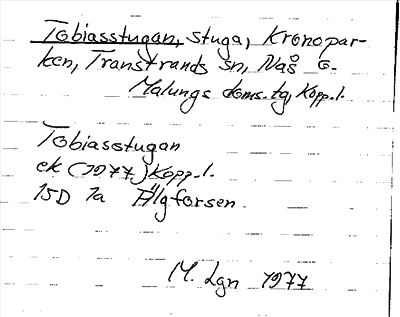 Tobiasstugan, stuga, Kronopar-
ken, Transtrands sn, Nås o.
Malungs doms.tg, Kopp.l.
Tobiasstugan
ek (1977) Kopp.l.
15D 1a Älgforsen
M. Lgn 1977